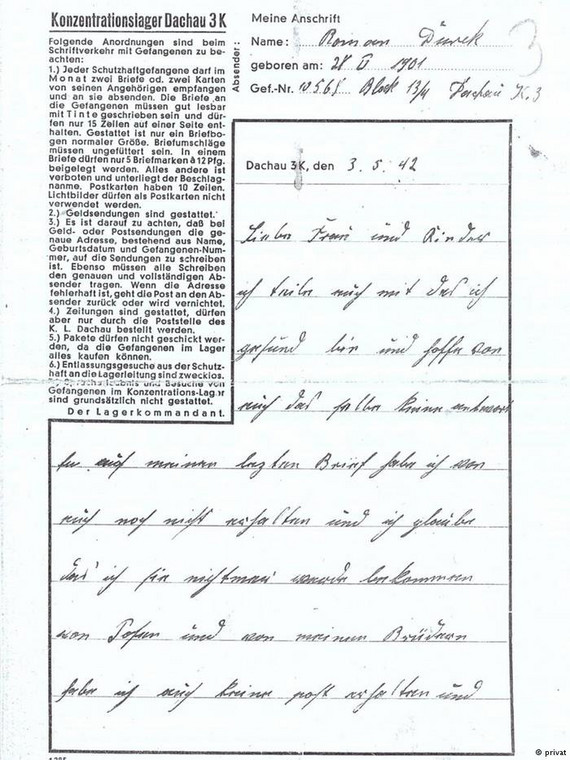 Konzentrationslager Dachau 3 K
Folgende Anordnungen sind beim
Schriftverkehr mit Gefangenen zu be-
achten:
1.) Jeder Schutzhaftgefangene darf im
Monat zwei Briefe od. zwei Karten
von seinen Angehörigen empfangen
und an sie absenden. Die Briefe an
die Gefangenen müssen gut lesbar
mit Tinte geschrieben sein und dür-
fen nur 15 Zeilen auf einer Seite ent-
halten. Gestattet ist nur ein Briefbo-
gen normaler Größe. Briefumschläge
müssen ungefüttert sein. In einem
Briefe dürfen nur 5 Briefmarken à 12 Pfg.
beigelegt werden. Alles andere ist
verboten und unterliegt der Beschlag-
nahme. Postkarten haben 10 Zeilen.
Lichtbilder dürfen als Postkarten nicht
verwendet werden.
2.) Geldsendungen sind gestattet.
3.) Es ist darauf zu achten, daß bei
Geld- oder Postsendungen die ge-
naue Adresse, bestehend aus Name,
Geburtsdatum und Gefangenen-Num-
mer, auf die Sendungen zu schreiben
ist. Ebenso müssen alle Schreiben
den genauen und vollständigen Ab-
sender tragen. Wenn die Adresse
fehlerhaft ist, geht die Post an den Ab-
sender zurück oder wird vernichtet.
4.) Zeitungen sind gestattet, dürfen
aber nur durch die Poststelle des
K. L. Dachau bestellt werden.
5.) Pakete dürfen nicht geschickt wer-
den, da die Gefangenen im Lager
alles kaufen können.
6.) Entlassungsgesuche aus der Schutz-
haft an die Lagerleitung sind zwecklos.
7.) Sprecherlaubnis und Besuche von
Gefangenen im Konzentrations-Lager
sind grundsätzlich nicht gestattet.
Der Lagerkommandant.
Absender:
Meine Anschrift
Name: Roman
geboren am: 28 1901
Gef.-Nr. Block 13/4 Dachau K. 3
3
Dachau 3 K, den 3. 5. 42
Liebe Frau und Kinder
ich teile euch mit das ich
gesund bin und hoffe von
euch das selbe keine antwort
auf meinen lezten Brief habe ich von
euch noch nicht erhalten und ich glaube
das ich sie nichtmer werde bekommen
von und von meinen Brüdern
habe ich auch keine post erhalten und
© privat